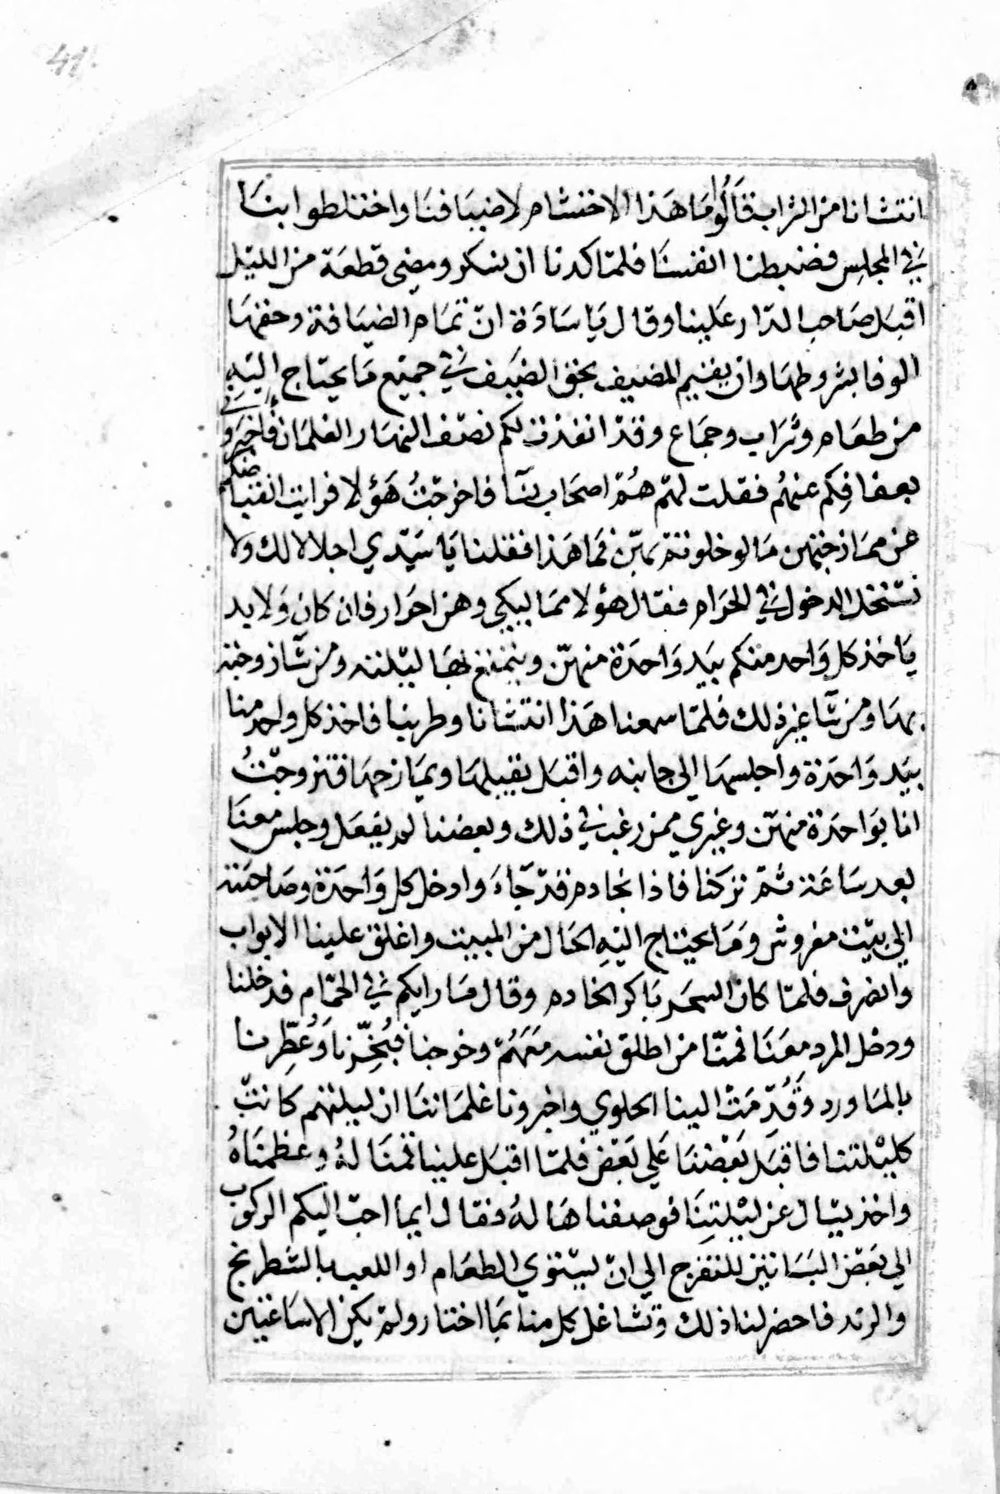 41
انتشانا من الشراب قالوا ما هذا الاحتشام لاضيافنا واختلطوا بنا
في المجلس فضبطنا انفسنا فلمّا كدنا ان نسكر ومضى قطعة من الليل
اقبل صاحب الدار علينا وقال يا سادة انّ تمام الضيافة وحقها
الوفا بشروطها وان يقيم المضيف بحق الضيف في جميع ما يحتاج اليه
من طعام وشراب وجماع وقد انفذت لكم نصف النهار الغلمان فاخبروني
بعفافكم عنهم فقلت لهم هم اصحاب نسا فاخرجت هؤلا فرايت انقباضكم
عن ممازحتهن ما لو خلوتم بهن فما هذا فقلنا يا سيّدي اجلالا لك ولا
نستحل الدخول في الحرام فقال هؤلا مماليكي وهن احرار فان كان ولابد
ياخذ كل واحد منكم بيد واحدة منهن ويتمتع بها ليلته ومن شا زوجته
بها ومن شا غير ذلك فلمّا سمعنا هذا انتشانا وطربنا فاخذ كل واحد منا
بيد واحدة واجلسها الى جانبه واقبل يقبلها ويمازحها فتزوجت
انا بواحدة منهن وغيري ممن رغب في ذلك وبعضنا لم يفعل وجلس معنا
بعد ساعة ثم تركنا فاذا بخادم قد جاء وادخل كل واحدة وصاحبه
الى بيت مفروش وما يحتاج اليه الحال من المبيت واغلق علينا الابواب
وانصرف فلمّا كان السحر باكر الخادم وقال ما رايكم في الحمّام فدخلنا
ودخل المرد معنا فمنّا من اطلق نفسه معهم وخرجنا فبُخّرنا وعُطّرنا
بالماورد وقُدّمت الينا الحلوى واخبرونا غلماننا ان ليلتهم كانت
كليلتنا فاقبل بعضنا على بعض فلمّا اقبل علينا قمنا له وعظمناه
واخذ يسال عن ليلتنا فوصفناها له فقال ايما احبّ اليكم الركوب
الى بعض البساتين للتفرج الى ان يستوي الطعام او اللعب بالشطرنج
والنرد فاحضر لنا ذلك وتشاغل كل منا بما اختار ولم يكن الا ساعتين